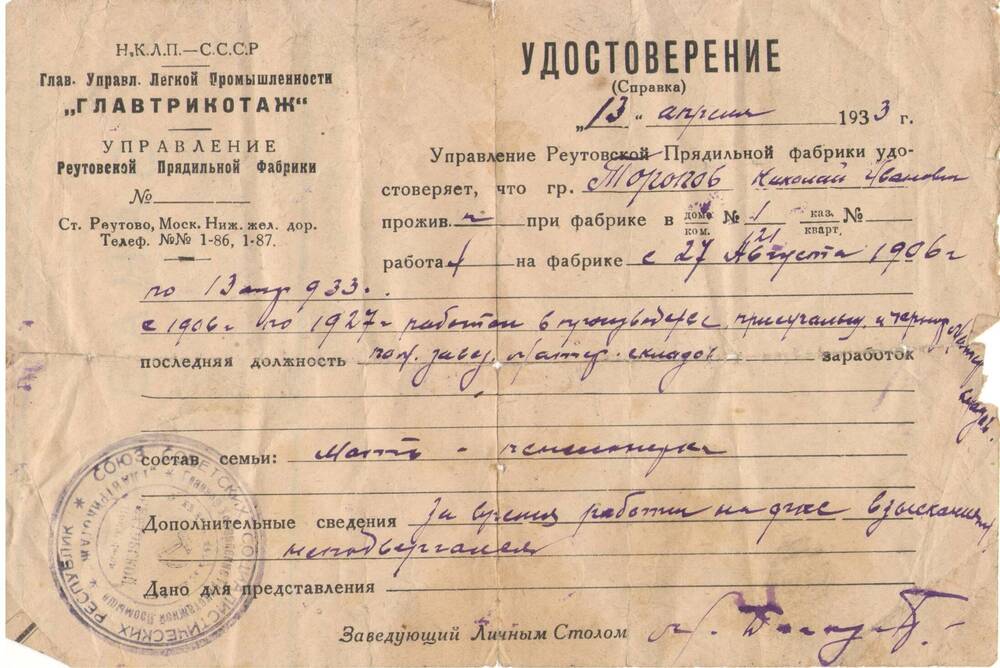 Н.К.Л.П.—С.С.С.Р
Глав. Управл. Легкой Промышленности
„ГЛАВТРИКОТАЖ“
УПРАВЛЕНИЕ
Реутовской Прядильной Фабрики
№
Ст. Реутово, Моск. Ниж. жел. дор.
Телеф. №№ 1-86, 1-87.
УДОСТОВЕРЕНИЕ
(Справка)
„13“ апреля 1933 г.
Управление Реутовской Прядильной фабрики удо-
стоверяет, что гр. Торопов Николай Иванович
прожив. при фабрике в дом. ком. № 1 каз. кварт. №
121
работал на фабрике с 27 Августа 1906 г
по 13 апр 933.
с 1906 г по 1927 г работал в
последняя должность пом. завед. матер. складов заработок
состав семьи: Мать - пенсионерка
Дополнительные сведения За время работы на ф-ке взысканиям
неподвергался
Дано для представления
Заведующий Личным Столом
СОЮЗ СОВЕТСКИХ СОЦИАЛИСТИЧЕСКИХ РЕСПУБЛИК